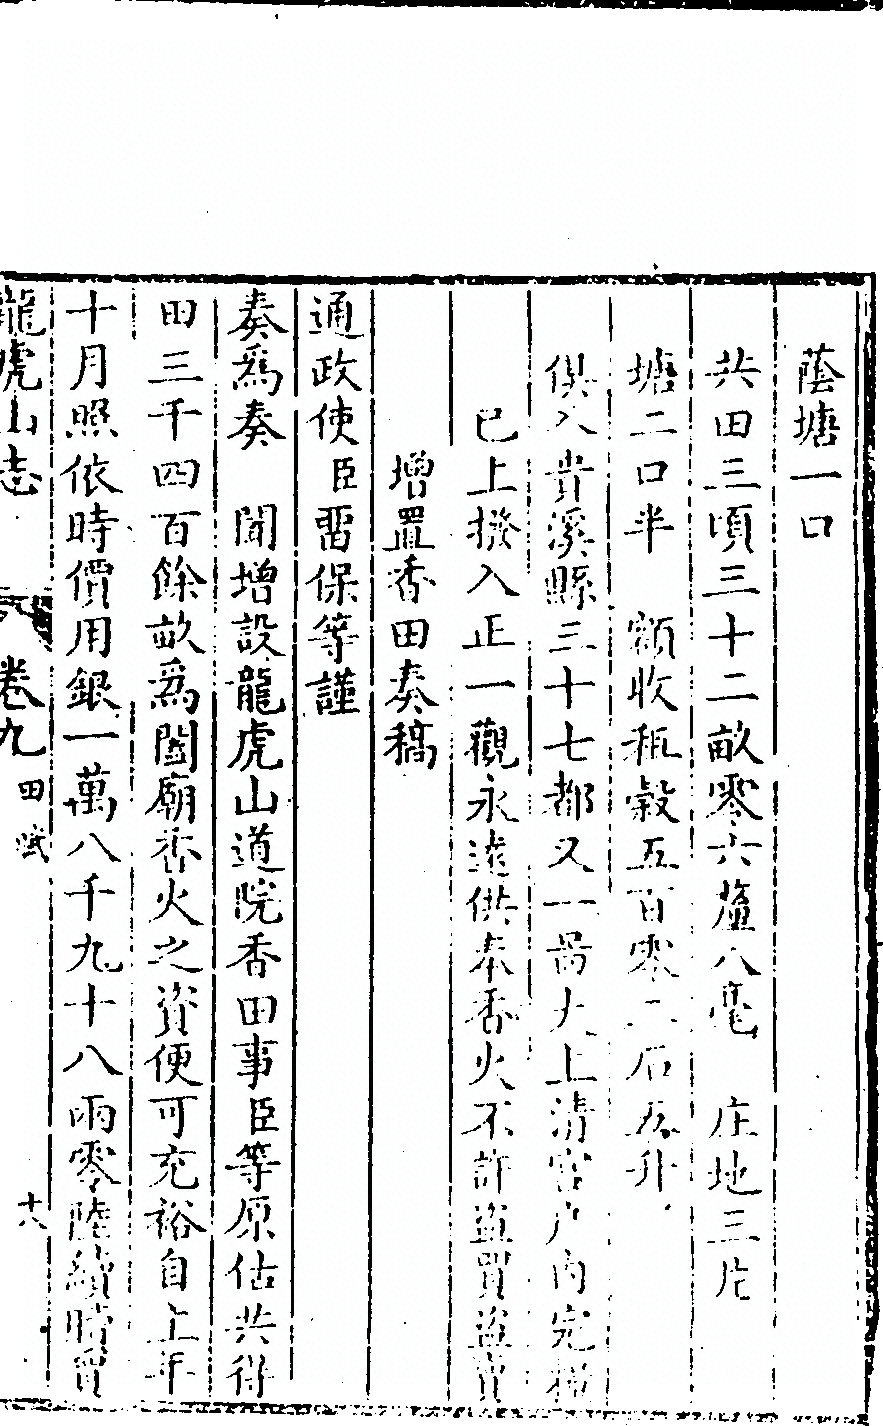 蔭塘一口
共田三頃三十二畝零六釐八毫 庄地三片
塘二口半 額收租穀五百零二石五升
俱入貴溪縣三十七都又一啚大上清宮戶內完糧
已上撥入正一觀永遠供奉香火不許盜買盜賣
增置香田奏稿
通政使臣畱保等謹
奏爲奏 聞增設龍虎山道院香田事臣等原估共得
田三千四百餘畝爲闔廟香火之資便可充裕自上年
十月照依時價用銀一萬八千九十八兩零陸續時買
龍虎山志 卷九 田賦 十六